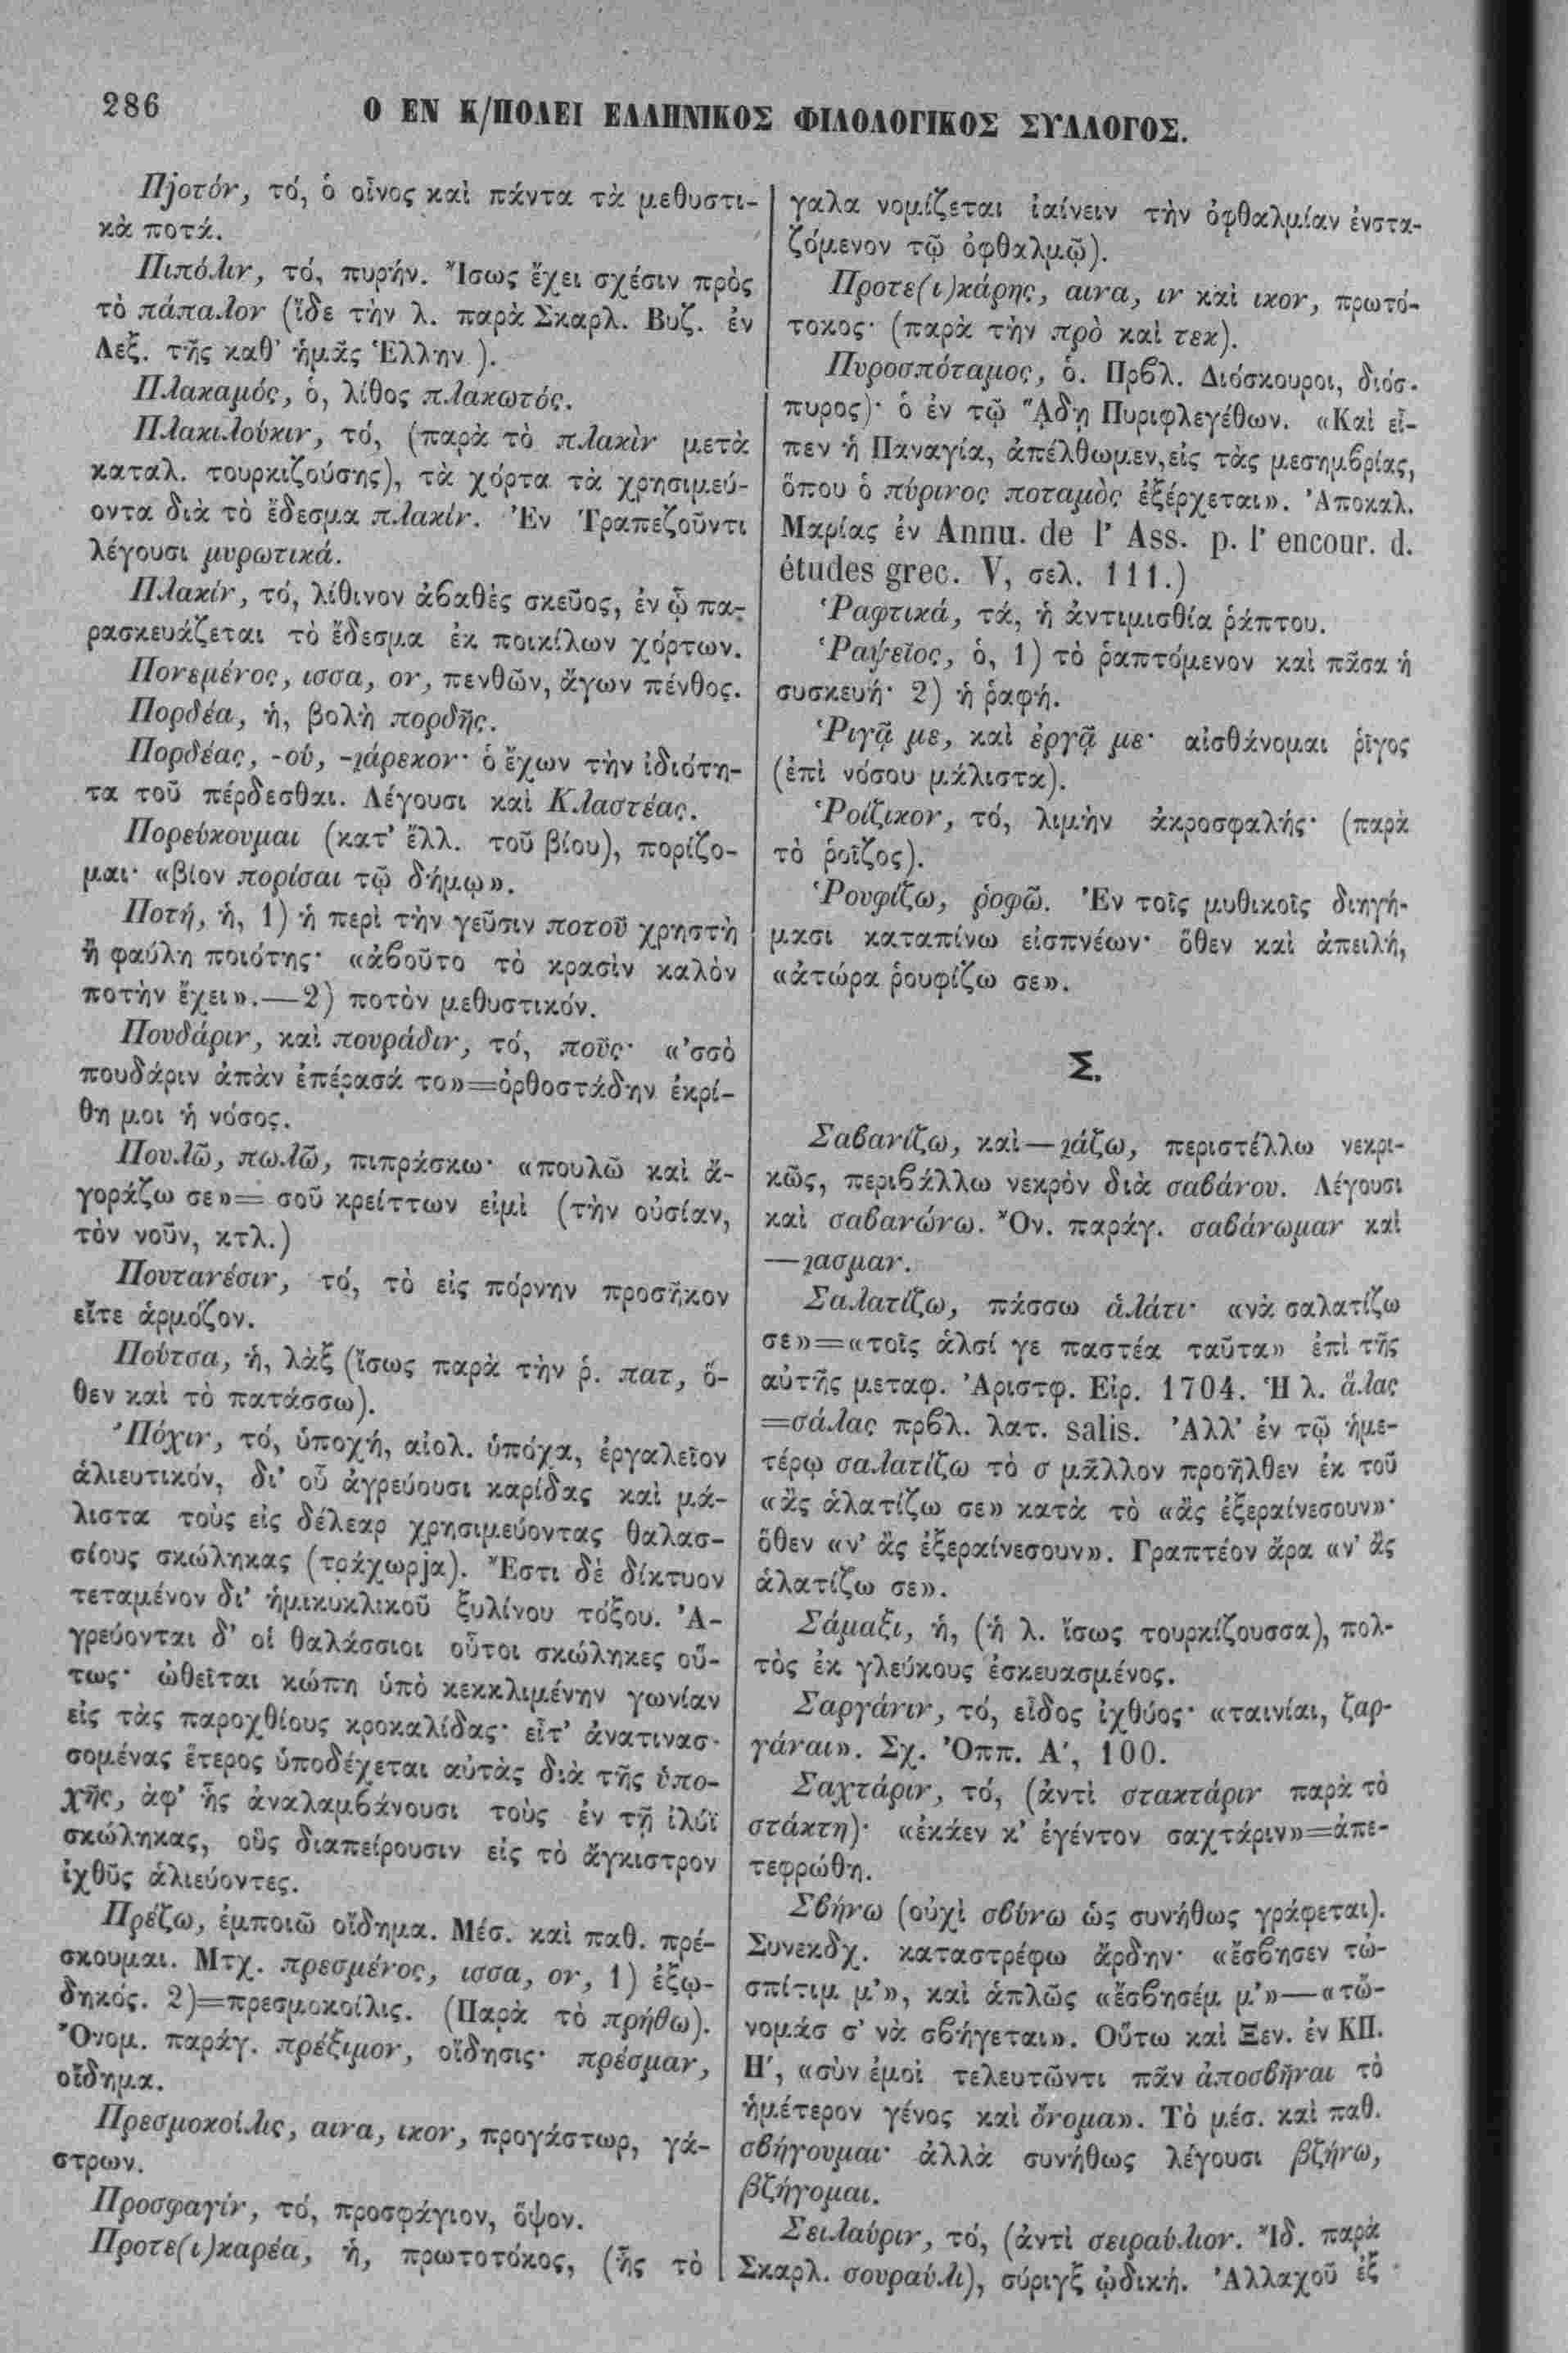 286
Ο ΕΝ Κ/ΠΟΛΕΙ ΕΛΛΗΝΙΚΟΣ ΦΙΛΟΛΟΓΙΚΟΣ ΣΥΛΛΟΓΟΣ.
Πjοτόν, τό, ὁ οἶνος καὶ πάντα τὰ μεθυστι-
κὰ ποτά.
Πιπόλιν, τό, πυρήν. Ἴσως ἔχει σχέσιν πρὸς
τὸ πάπαλον (ἴδε τὴν λ. παρὰ Σκαρλ. Βυζ. ἐν
Λεξ. τῆς καθ’ ἡμᾶς Ἑλλην ).
Πλακαμός, ὁ, λίθος πλακωτός.
Πλακιλούκιν, τό, (παρὰ τὸ πλακὶν μετὰ
καταλ. τουρκιζούσης), τὰ χόρτα τὰ χρησιμεύ-
οντα διὰ τὸ ἔδεσμα πλακίν. Ἐν Τραπεζοῦντι
λέγουσι μυρωτικά.
Πλακίν, τό, λίθινον ἀβαθὲς σκεῦος, ἐν ᾧ πα-
ρασκευάζεται τὸ ἔδεσμα ἐκ ποικίλων χόρτων.
Πονεμένος, ισσα, ον, πενθῶν, ἄγων πένθος.
Πορδέα, ἡ, βολὴ πορδῆς.
Πορδέας, -οὐ, -ιάρεκον· ὁ ἔχων τὴν ἰδιότη-
τα τοῦ πέρδεσθαι. Λέγουσι καὶ Κλαστέας.
Πορεύκουμαι (κατ’ ἔλλ. τοῦ βίου), πορίζο-
μαι· «βίον πορίσαι τῷ δήμῳ».
Ποτή, ἡ, 1) ἡ περὶ τὴν γεῦσιν ποτοῦ χρηστὴ
ἢ φαύλη ποιότης· «ἀβοῦτο τὸ κρασὶν καλὸν
ποτὴν ἔχει».—2) ποτὸν μεθυστικόν.
Πουδάριν, καὶ πουράδιν, τό, ποῦς· «’σσὸ
πουδάριν ἀπὰν ἐπέρασά το»=ὀρθοστάδην ἐκρί-
θη μοι ἡ νόσος.
Πουλῶ, πωλῶ, πιπράσκω· «πουλῶ καὶ ἀ-
γοράζω σε»= σοῦ κρείττων εἰμὶ (τὴν οὐσίαν,
τὸν νοῦν, κτλ.)
Πουτανέσιν, τό, τὸ εἰς πόρνην προσῆκον
εἴτε ἁρμόζον.
Πούτσα, ἡ, λὰξ (ἴσως παρὰ τὴν ῥ. πατ, ὅ-
θεν καὶ τὸ πατάσσω).
’Πόχιν, τό, ὑποχή, αἰολ. ὑπόχα, ἐργαλεῖον
ἁλιευτικόν, δι’ οὗ ἀγρεύουσι καρίδας καὶ μά-
λιστα τοὺς εἰς δέλεαρ χρησιμεύοντας θαλασ-
σίους σκώληκας (τράχωρjα). Ἔστι δὲ δίκτυον
τεταμένον δι’ ἡμικυκλικοῦ ξυλίνου τόξου. Ἀ-
γρεύονται δ’ οἱ θαλάσσιοι οὗτοι σκώληκες οὕ-
τως· ὠθεῖται κώπη ὑπὸ κεκκλιμένην γωνίαν
εἰς τὰς παροχθίους κροκαλίδας· εἶτ’ ἀνατινασ-
σομένας ἕτερος ὑποδέχεται αὐτὰς διὰ τῆς ὑπο-
χῆς, ἀφ’ ἧς ἀναλαμβάνουσι τοὺς ἐν τῇ ἰλύϊ
σκώληκας, οὓς διαπείρουσιν εἰς τὸ ἄγκιστρον
ἰχθῦς ἁλιεύοντες.
Πρέζω, ἐμποιῶ οἴδημα. Μέσ. καὶ παθ. πρέ-
σκουμαι. Μτχ. πρεσμένος, ισσα, ον, 1) ἐξῳ-
δηκός. 2)=πρεσμοκοίλις. (Παρὰ τὸ πρήθω).
Ὀνομ. παράγ. πρέξιμον, οἴδησις· πρέσμαν,
οἴδημα.
Πρεσμοκοίλις, αινα, ικον, προγάστωρ, γά-
στρων.
Προσφαγίν, τό, προσφάγιον, ὄψον.
Προτε(ι)καρέα, ἡ, πρωτοτόκος, (ἧς τὸ
γαλα νομίζεται ἰαίνειν τὴν ὀφθαλμίαν ἐνστα-
ζόμενον τῷ ὀφθαλμῷ).
Προτε(ι)κάρης, αινα, ιν καὶ ικον, πρωτό-
τοκος· (παρὰ τὴν πρὸ καὶ τεκ).
Πυροσπόταμος, ὁ. Πρβλ. Διόσκουροι, διόσ-
πυρος)· ὁ ἐν τῷ ᾍδῃ Πυριφλεγέθων. «Καὶ εἶ-
πεν ἡ Παναγία, ἀπέλθωμεν,εἰς τὰς μεσημβρίας,
ὅπου ὁ πύρινος ποταμὸς ἐξέρχεται». Ἀποκαλ.
Μαρίας ἐν Annu. de l’ Ass. p. l’ encour. d.
études grec. V, σελ. 111.)
Ῥαφτικά, τά, ἡ ἀντιμισθία ῥάπτου.
Ῥαψεῖος, ὁ, 1) τὸ ῥαπτόμενον καὶ πᾶσα ἡ
συσκευή· 2) ἡ ῥαφή.
Ῥιγᾷ με, καὶ ἐργᾷ με· αἰσθάνομαι ῥῖγος
(ἐπὶ νόσου μάλιστα).
Ῥοίζικον, τό, λιμὴν ἀκροσφαλής· (παρὰ
τὸ ῥοῖζος).
Ῥουφίζω, ῥοφῶ. Ἐν τοῖς μυθικοῖς διηγή-
μασι καταπίνω εἰσπνέων· ὅθεν καὶ ἀπειλή,
«ἀτώρα ῥουφίζω σε».
Σ.
Σαβανίζω, καὶ—ιάζω, περιστέλλω νεκρι-
κῶς, περιβάλλω νεκρὸν διὰ σαβάνου. Λέγουσι
καὶ σαβανώνω. Ὄν. παράγ. σαβάνωμαν καὶ
—ιασμαν.
Σαλατίζω, πάσσω ἁλάτι· «νὰ σαλατίζω
σε»=«τοῖς ἁλσί γε παστέα ταῦτα» ἐπὶ τῆς
αὐτῆς μεταφ. Ἀριστφ. Εἰρ. 1704. Ἡ λ. ἅλας
=σάλας πρβλ. λατ. salis. Ἀλλ’ ἐν τῷ ἡμε-
τέρῳ σαλατίζω τὸ σ μᾶλλον προῆλθεν ἐκ τοῦ
«ἂς ἁλατίζω σε» κατὰ τὸ «ἂς ἐξεραίνεσουν»·
ὅθεν «ν’ ἂς ἐξεραίνεσουν». Γραπτέον ἄρα «ν’ ἂς
ἁλατίζω σε».
Σάμαξι, ἡ, (ἡ λ. ἴσως τουρκίζουσσα), πολ-
τὸς ἐκ γλεύκους ἐσκευασμένος.
Σαργάνιν, τό, εἶδος ἰχθύος· «ταινίαι, ζαρ-
γάναι». Σχ. Ὀππ. Α′, 100.
Σαχτάριν, τό, (ἀντὶ στακτάριν παρὰ τὸ
στάκτη)· «ἐκάεν κ’ ἐγέντον σαχτάριν»=ἀπε-
τεφρώθη.
Σβήνω (οὐχὶ σβύνω ὡς συνήθως γράφεται).
Συνεκδχ. καταστρέφω ἄρδην· «ἔσβησεν τὠ-
σπίτιμ μ’», καὶ ἁπλῶς «ἔσβησέμ μ’»—«τὤ-
νομάσ σ’ νὰ σβήγεται». Οὕτω καὶ Ξεν. ἐν ΚΠ.
Η′, «σὺν ἐμοὶ τελευτῶντι πᾶν ἀποσβῆναι τὸ
ἡμέτερον γένος καὶ ὄνομα». Τὸ μέσ. καὶ παθ.
σβήγουμαι· ἀλλὰ συνήθως λέγουσι βζήνω,
βζήγομαι.
Σειλαύριν, τό, (ἀντὶ σειραύλιον. Ἴδ. παρὰ
Σκαρλ. σουραύλι), σύριγξ ᾠδική. Ἀλλαχοῦ ἐξ